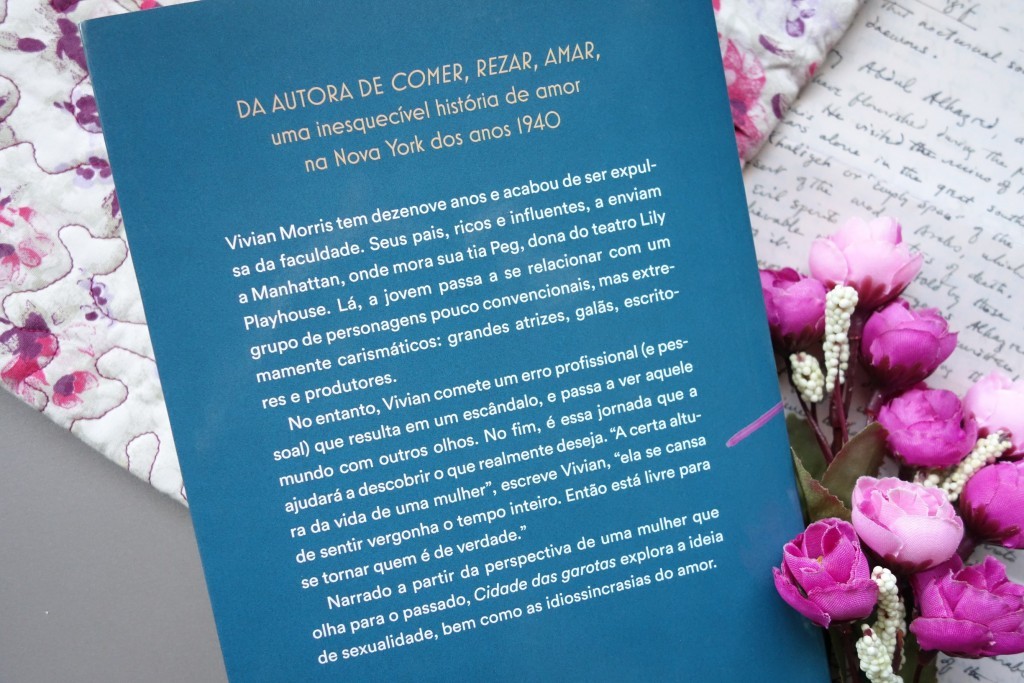 DA AUTORA DE COMER, REZAR, AMAR,
uma inesquecível história de amor
na Nova York dos anos 1940
Vivian Morris tem dezenove anos e acabou de ser expul-
sa da faculdade. Seus pais, ricos e influentes, a enviam
a Manhattan, onde mora sua tia Peg, dona do teatro Lily
Playhouse. Lá, a jovem passa a se relacionar com um
grupo de personagens pouco convencionais, mas extre-
mamente carismáticos: grandes atrizes, galãs, escrito-
res e produtores.
No entanto, Vivian comete um erro profissional (e pes-
soal) que resulta em um escândalo, e passa a ver aquele
mundo com outros olhos. No fim, é essa jornada que a
ajudará a descobrir o que realmente deseja. “A certa altu-
ra da vida de uma mulher”, escreve Vivian, “ela se cansa
de sentir vergonha o tempo inteiro. Então está livre para
se tornar quem é de verdade.”
Narrado a partir da perspectiva de uma mulher que
olha para o passado, Cidade das garotas explora a ideia
de sexualidade, bem como as idiossincrasias do amor.
this nocturnal so
daemons.
Abdul Alhazred,
flourished during the
He visited the ruins of
alone in the great southe
or "Empty space"
of the
Evil Spirit
of Arabs,
of death.
those
Alhazred